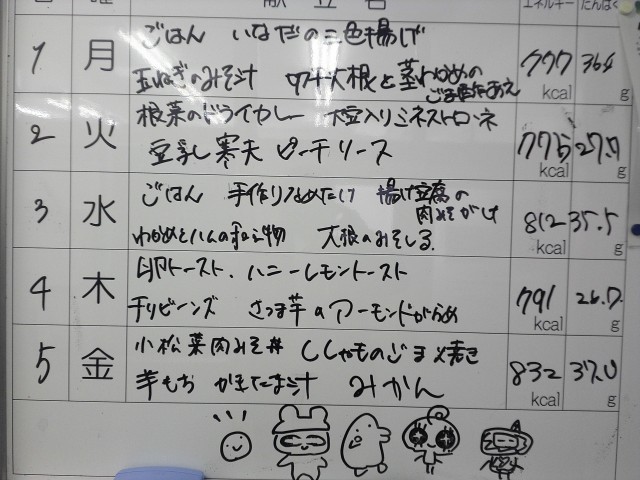 献立名 エネルギー たんぱく
1 月 ごはん いなだの三色揚げ
玉ねぎのみそ汁 切干大根と茎わかめの
ごま酢あえ
777 kcal 36.4 g
2 火 根菜のドライカレー 大豆入りミネストローネ
豆乳寒天ピーチソース
775 kcal 27.7 g
3 水 ごはん 手作りなめたけ 揚げ豆腐の
肉みそがけ
わかめとハムの和え物 大根のみそしる
812 kcal 35.5 g
4 木 卵トースト、ハニーレモントースト
チリビーンズ さつま芋のアーモンドがらめ
791 kcal 26.7 g
5 金 小松菜肉みそ丼 ししゃものごま焼き
芋もち かきたま汁 みかん
832 kcal 37.0 g